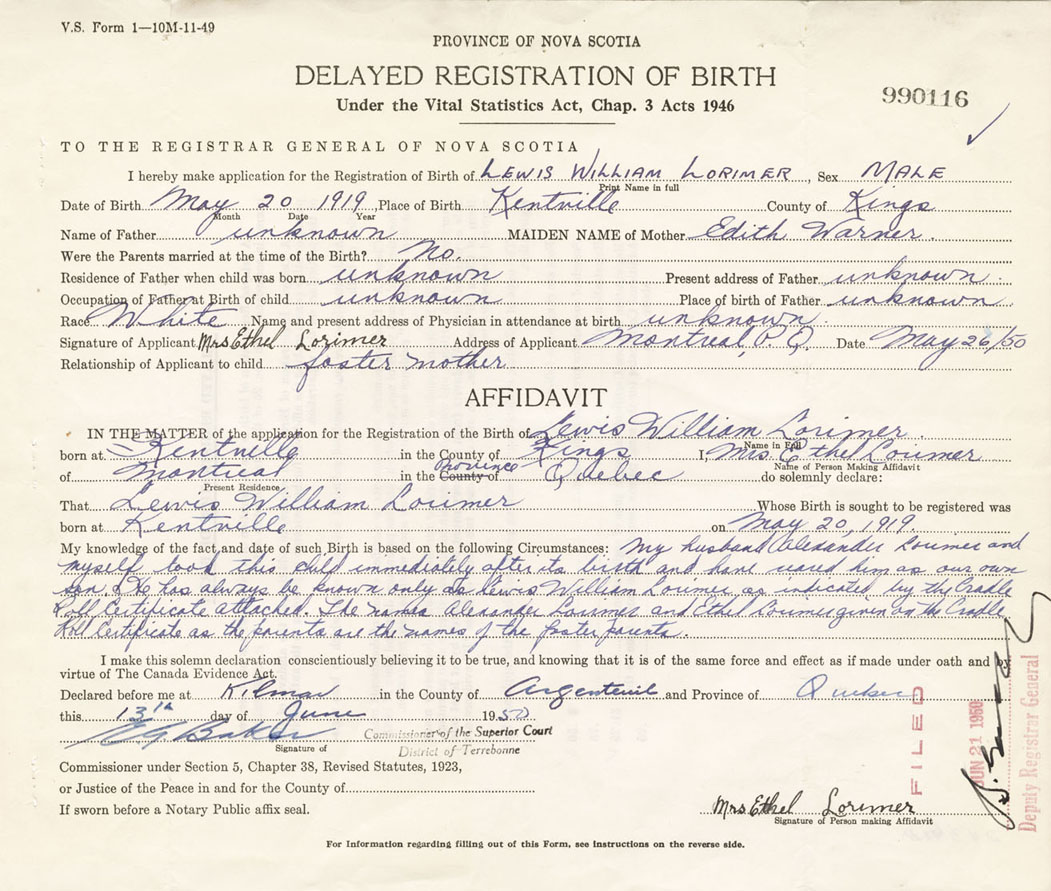 V.S. Form 1—10M-11-49
PROVINCE OF NOVA SCOTIA
DELAYED REGISTRATION OF BIRTH
990116
Under the Vital Statistics Act, Chap. 3 Acts 1946
TO THE REGISTRAR GENERAL OF NOVA SCOTIA
I hereby make application for the Registration of Birth of LEWIS WILLIAM LORIMER, Sex MALE
Print Name in full
Date of Birth May 20 1919, Place of Birth Kentville County of Kings
Month Date Year
Name of Father unknown MAIDEN NAME of Mother Edith Warner.
Were the Parents married at the time of the Birth? No.
Residence of Father when child was born unknown Present address of Father unknown.
Occupation of Father at Birth of child unknown Place of birth of Father unknown
Race White Name and present address of Physician in attendance at birth unknown.
Signature of Applicant Mrs Ethel Lorimer Address of Applicant Montreal, P.Q. Date May 26/50
Relationship of Applicant to child foster mother
AFFIDAVIT
IN THE MATTER of the application for the Registration of the Birth of Lewis William Lorimer.
Name in Full
born at Kentville in the County of Kings I, Mrs. Ethel Lorimer
Name of Person Making Affidavit
of Montreal in the County of Province Quebec do solemnly declare:
Present Residence
That Lewis William Lorimer Whose Birth is sought to be registered was
born at Kentville on May 20, 1919.
My knowledge of the fact and date of such Birth is based on the following Circumstances: My husband Alexander Lorimer and
myself took this child immediately after its birth and have reared him as our own
son. He has always be known only as Lewis William Lorimer as indicated by the Cradle
Roll Certificate attached. The names Alexander Lorimer and Ethel Lorimer given on the Cradle
Roll Certificate as the parents are the names of the foster parents.
I make this solemn declaration conscientiously believing it to be true, and knowing that it is of the same force and effect as if made under oath and by
virtue of The Canada Evidence Act.
Declared before me at Kilmar in the County of Argenteuil and Province of Quebec
this 13th day of June 1950
E G Baker Commissioner of the Superior Court
Signature of District of Terrebonne
Commissioner under Section 5, Chapter 38, Revised Statutes, 1923,
or Justice of the Peace in and for the County of
If sworn before a Notary Public affix seal.
Mrs Ethel Lorimer
Signature of Person making Affidavit
For Information regarding filling out of this Form, see instructions on the reverse side.
FILED
JUN 21 1950
Deputy Registrar General